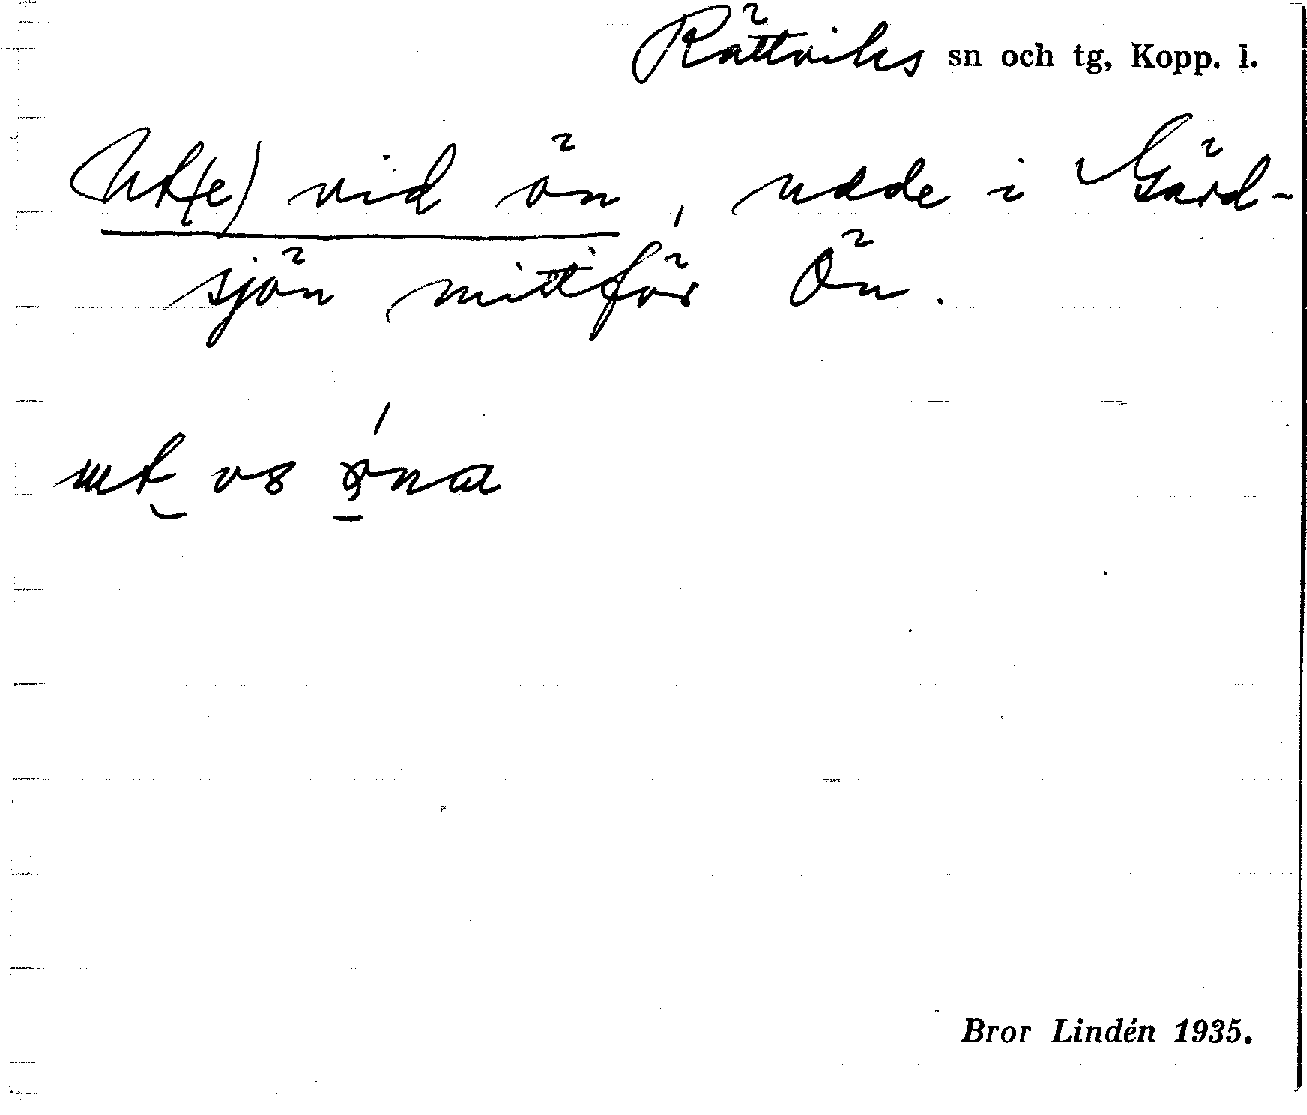 Rättviks sn och tg, Kopp. l.
Ut(e) vid ön, udde i Gärd-
sjön mittför Ön.
Bror Lindén 1935.